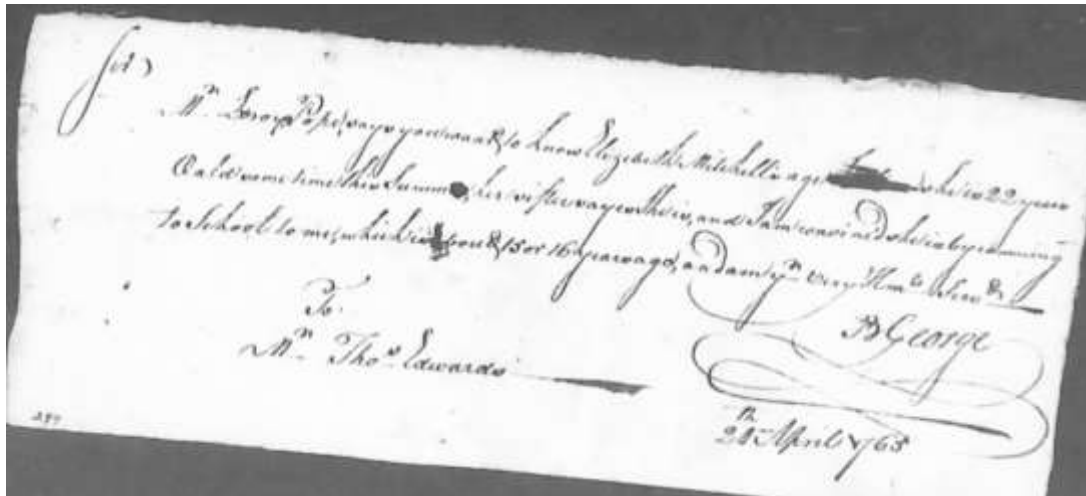 Sir)
Mr. Leroy Pope, says you want to know Elizabeth Mitchell's age she is 22 years
Oald some time this Summer, her sister says she is, and I am convincd she is by coming
to School to me, which is about 15 or 16 years ago, and am yr. Very Hme. Servt.
B George
To.
Mr. Thos. Edwards
20th April 1765